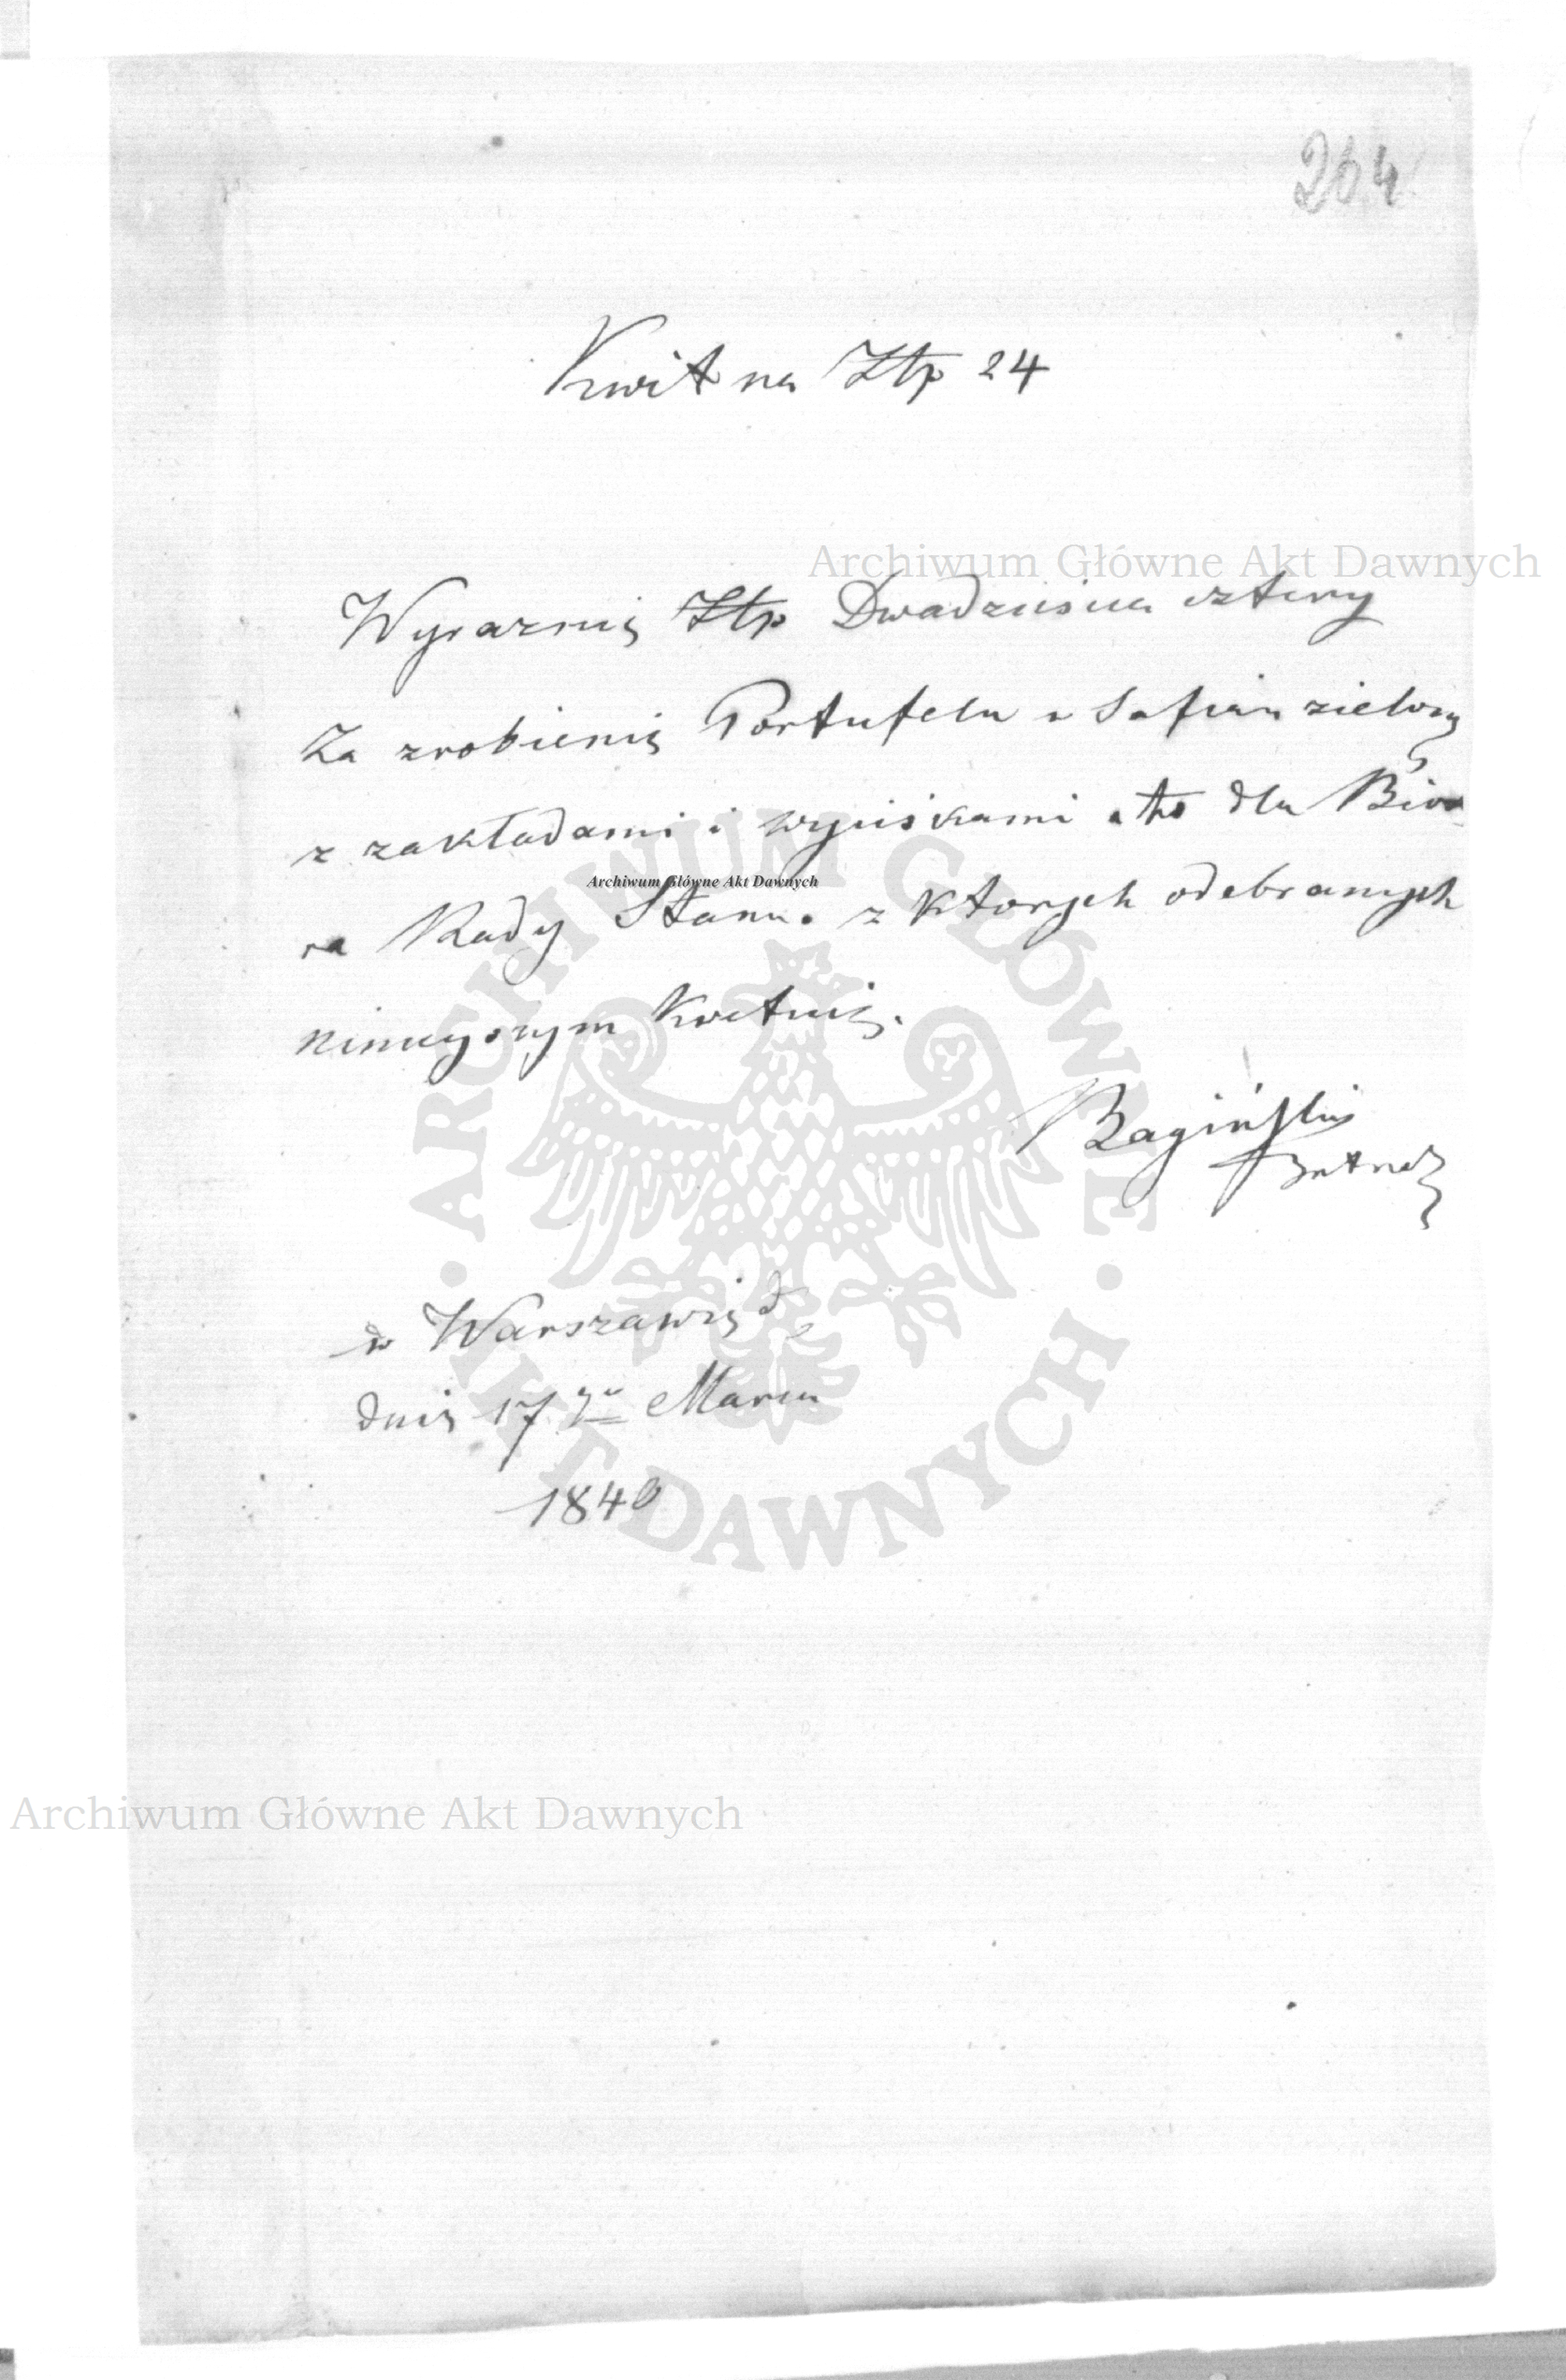 264
Kwit na Złp 24
Archiwum Główne Akt Dawnych
Wyraznie Złp Dwadziescia cztery
Za zrobienie Portufelu w Safian zielony
z zakładami i wyciskami a to dla Biu
ra Rady Stanu. z ktorych odebranych
Archiwum Główne Akt Dawnych
ninieyszym Kwituię.
Bagiński
w Warszawie d
dnia 17 go Marca
1840
ARCHIWUM GŁÓWNE AKT DAWNYCH
Archiwum Główne Akt Dawnych